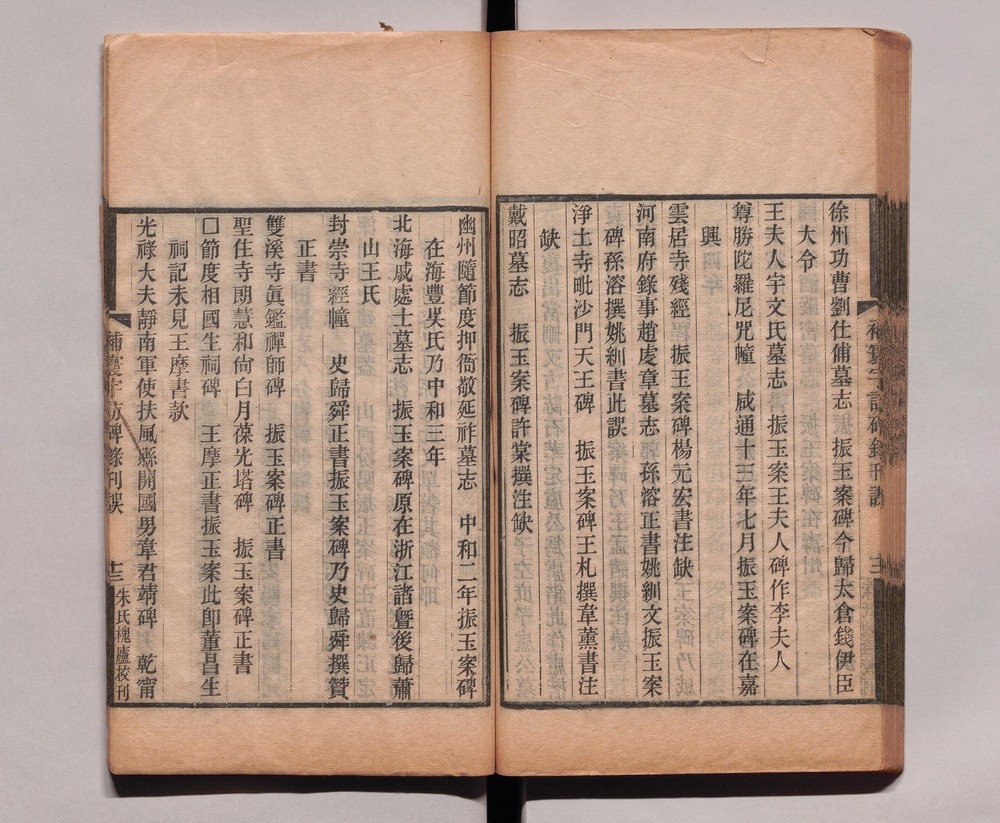 徐州功曹劉仕俌墓志　振玉案碑今歸太倉錢伊臣
大令
王夫人宇文氏墓志　振玉案王夫人碑作李夫人
尊勝陀羅尼咒幢　咸通十三年七月振玉案碑在嘉
興
雲居寺殘經　振玉案碑楊元宏書注缺
河南府錄事趙虔章墓志　孫溶正書姚紃文振玉案
碑孫溶撰姚紃書此誤
淨土寺毗沙門天王碑　振玉案碑王札撰韋薰書注
缺
戴昭墓志　振玉案碑許棠撰注缺
補寰宇訪碑錄刊誤
十二
幽州隨節度押衙敬延祚墓志　中和二年振玉案碑
在海豐吳氏乃中和三年
北海戚處士墓志　振玉案碑原在浙江諸暨後歸蕭
山王氏
封崇寺經幢　史歸舜正書振玉案碑乃史歸舜撰贊
正書
雙溪寺眞鑑禪師碑　振玉案碑正書
聖住寺朗慧和尙白月葆光塔碑　振玉案碑正書
□節度相國生祠碑　王摩正書振玉案此卽董昌生
祠記未見王摩書款
光祿大夫靜南軍使扶風縣開國男韋君靖碑　乾甯
補寰宇訪碑錄刊誤
十三
朱氏槐廬校刊